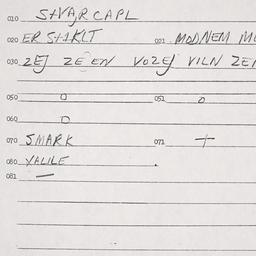 010 S+VARCAPL
020 ER S+1KLT 021 MODNEM
030 ZEJ ZE EN VOZEJ VILN ZE
050 0 051 0
060 0
070 SMARK 071 +
080 YALILE
081 —